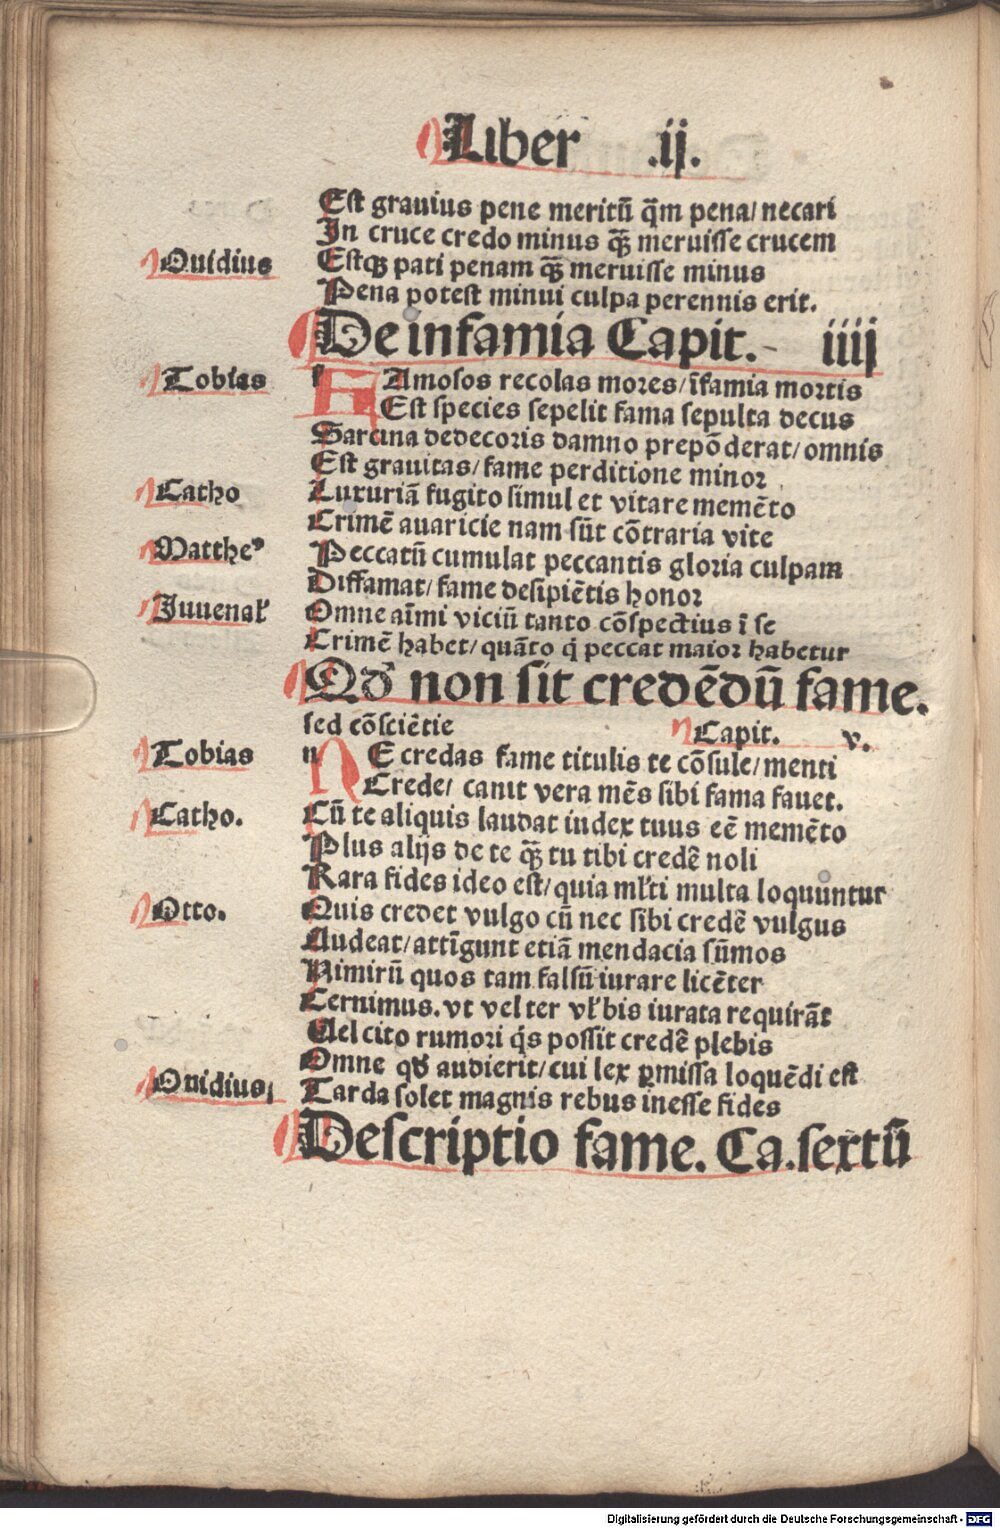 Liber .ij.
Est grauius pene meritū q̄m pena/ necari
In cruce credo minus q̄ꝫ meruisse crucem
Ouidius
Estqꝫ pati penam q̄ꝫ meruisse minus
Pena potest minui culpa perennis erit.
De infamia Capit. iiij
Tobias
f FAmosos recolas mores/ īfamia mortis
Est species sepelit fama sepulta decus
Sarcina dedecoris damno prepōderat/ omnis
Est grauitas/ fame perditione minor
Catho
Luxuriā fugito simul et vitare memēto
Crimē auaricie nam sūt cōtraria vite
Mattheꝰ
Peccatū cumulat peccantis gloria culpam
Diffamat/ fame desipiētis honor
Juuenal̕
Omne aīmi viciū tanto cōspectius ī se
Crimē habet/ quāto q̇ peccat maior habetur
Qd̕ non sit credēdū fame.
sed cōsciētie Capit. v.
Tobias
n NE credas fame titulis te cōsule/ menti
Crede/ canit vera mēs sibi fama fauet.
Catho.
Cū te aliquis laudat iudex tuus eē memēto
Plus alijs de te q̄ꝫ tu tibi credē noli
Rara fides ideo est/ quia ml̕ti multa loquūntur
Otto.
Quis credet vulgo cū nec sibi credē vulgus
Audeat/ attīgunt etiā mendacia sūmos
Nimirū quos tam falsū iurare licēter
Cernimus. vt vel ter vl̕ bis iurata requirāt
Uel cito rumori q̇s possit credē plebis
Omne qd̕ audierit/ cui lex ꝑmissa loquēdi est
Ouidius
Tarda solet magnis rebus inesse fides
Descriptio fame. Ca. sextū
Digitalisierung gefördert durch die Deutsche Forschungsgemeinschaft - DFG